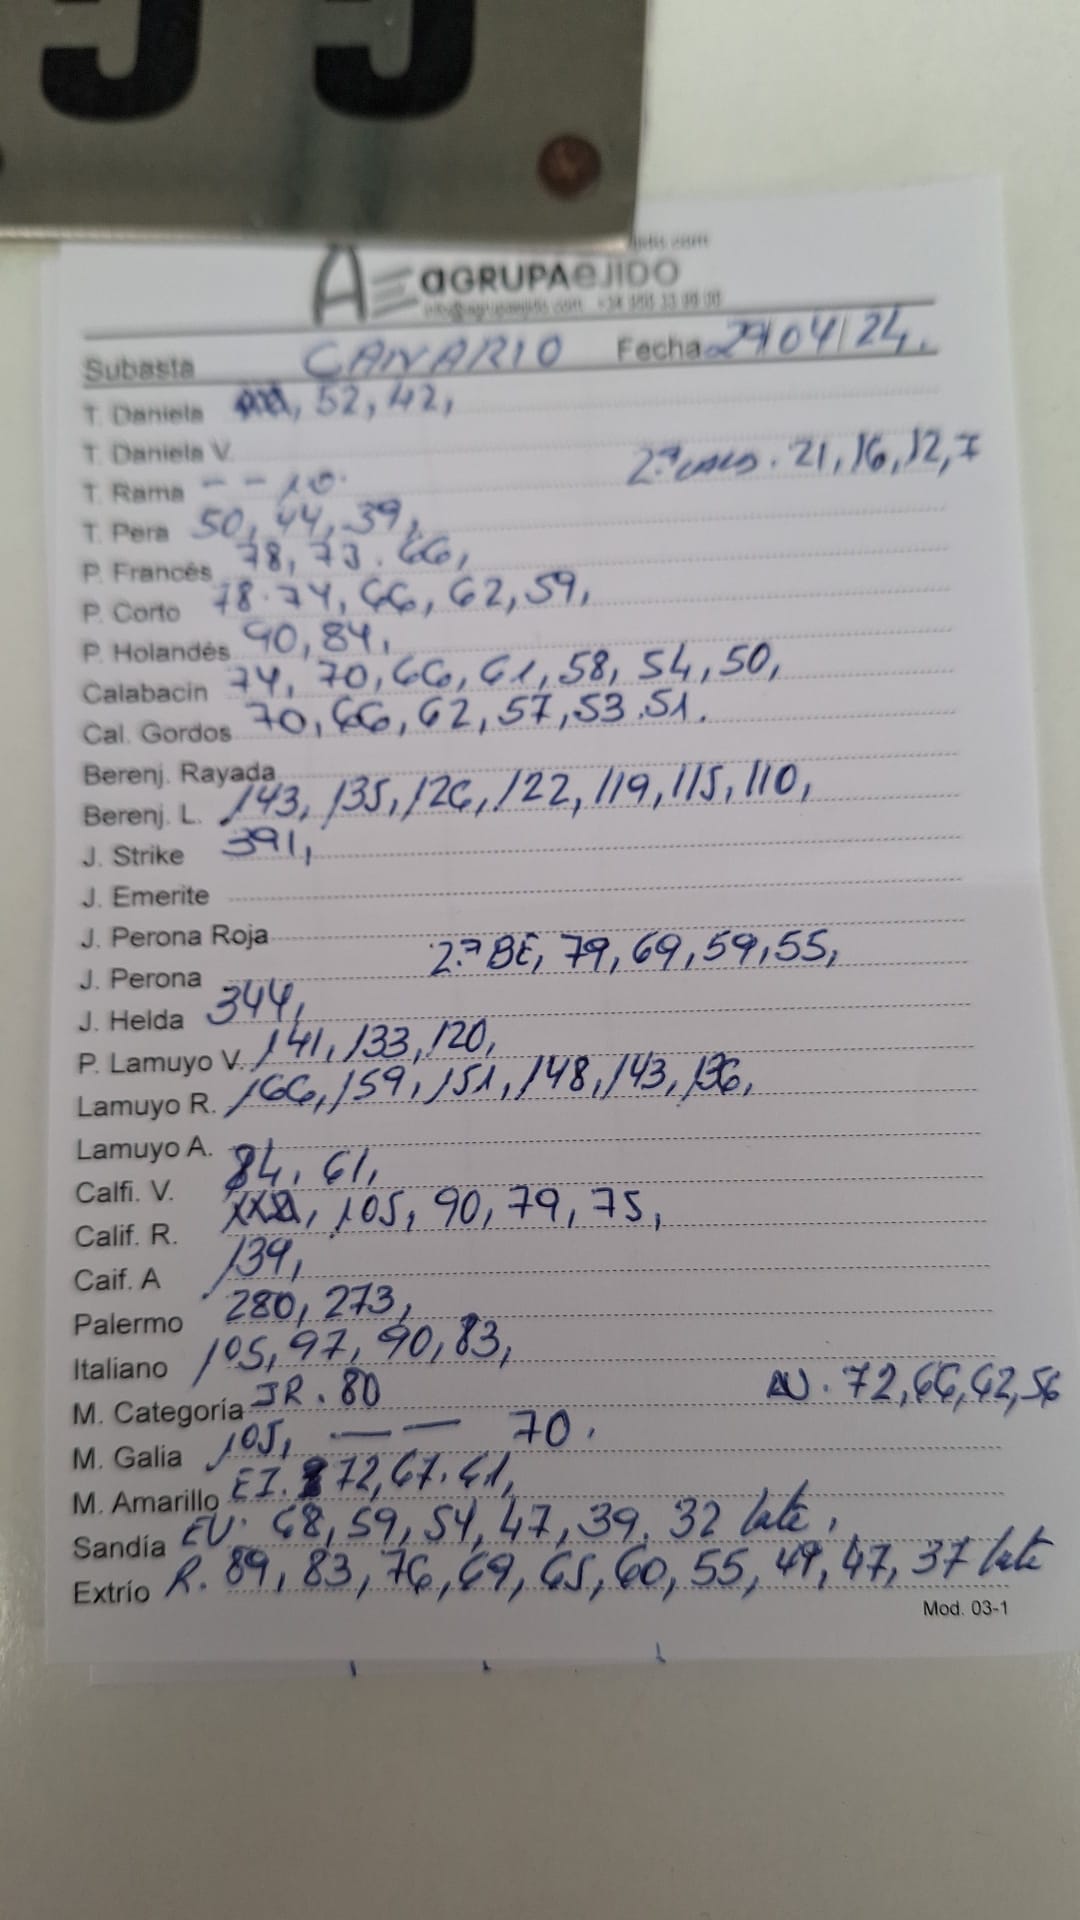 AE aGRUPAeJIDO
info@agrupaejido.com
Subasta CANARIO Fecha 29/04/24.
T. Daniela , 52, 42,
T. Daniela V.
2.ª 21, 16, 12, 7
T. Rama - - 10.
T. Pera 50, 44, 39,
P. Francés 78, 73. 66,
P. Corto 78. 74, 66, 62, 59,
P. Holandés 90, 84,
Calabacin 74, 70, 66, 61, 58, 54, 50,
Cal. Gordos 70, 66, 62, 57, 53. 51.
Berenj. Rayada
Berenj. L. 143, 135, 126, 122, 119, 115, 110,
J. Strike 391,
J. Emerite
J. Perona Roja
J. Perona 2.ª BE, 79, 69, 59, 55,
J. Helda 344,
P. Lamuyo V. 141, 133, 120,
Lamuyo R. 166, 159, 151, 148, 143, 136,
Lamuyo A.
Calfi. V. 84, 61,
Calif. R. , 105, 90, 79, 75,
Caif. A 139,
Palermo 280, 273,
Italiano 105, 97, 90, 83,
M. Categoría JR. 80 72, 66, 62, 56
M. Galia 105, — — 70.
M. Amarillo EI. 72, 67. 61,
Sandía EV. 68, 59, 54, 47, 39. 32 late,
Extrío R. 89, 83, 76, 69, 65, 60, 55, 49, 47, 37 late
Mod. 03-1